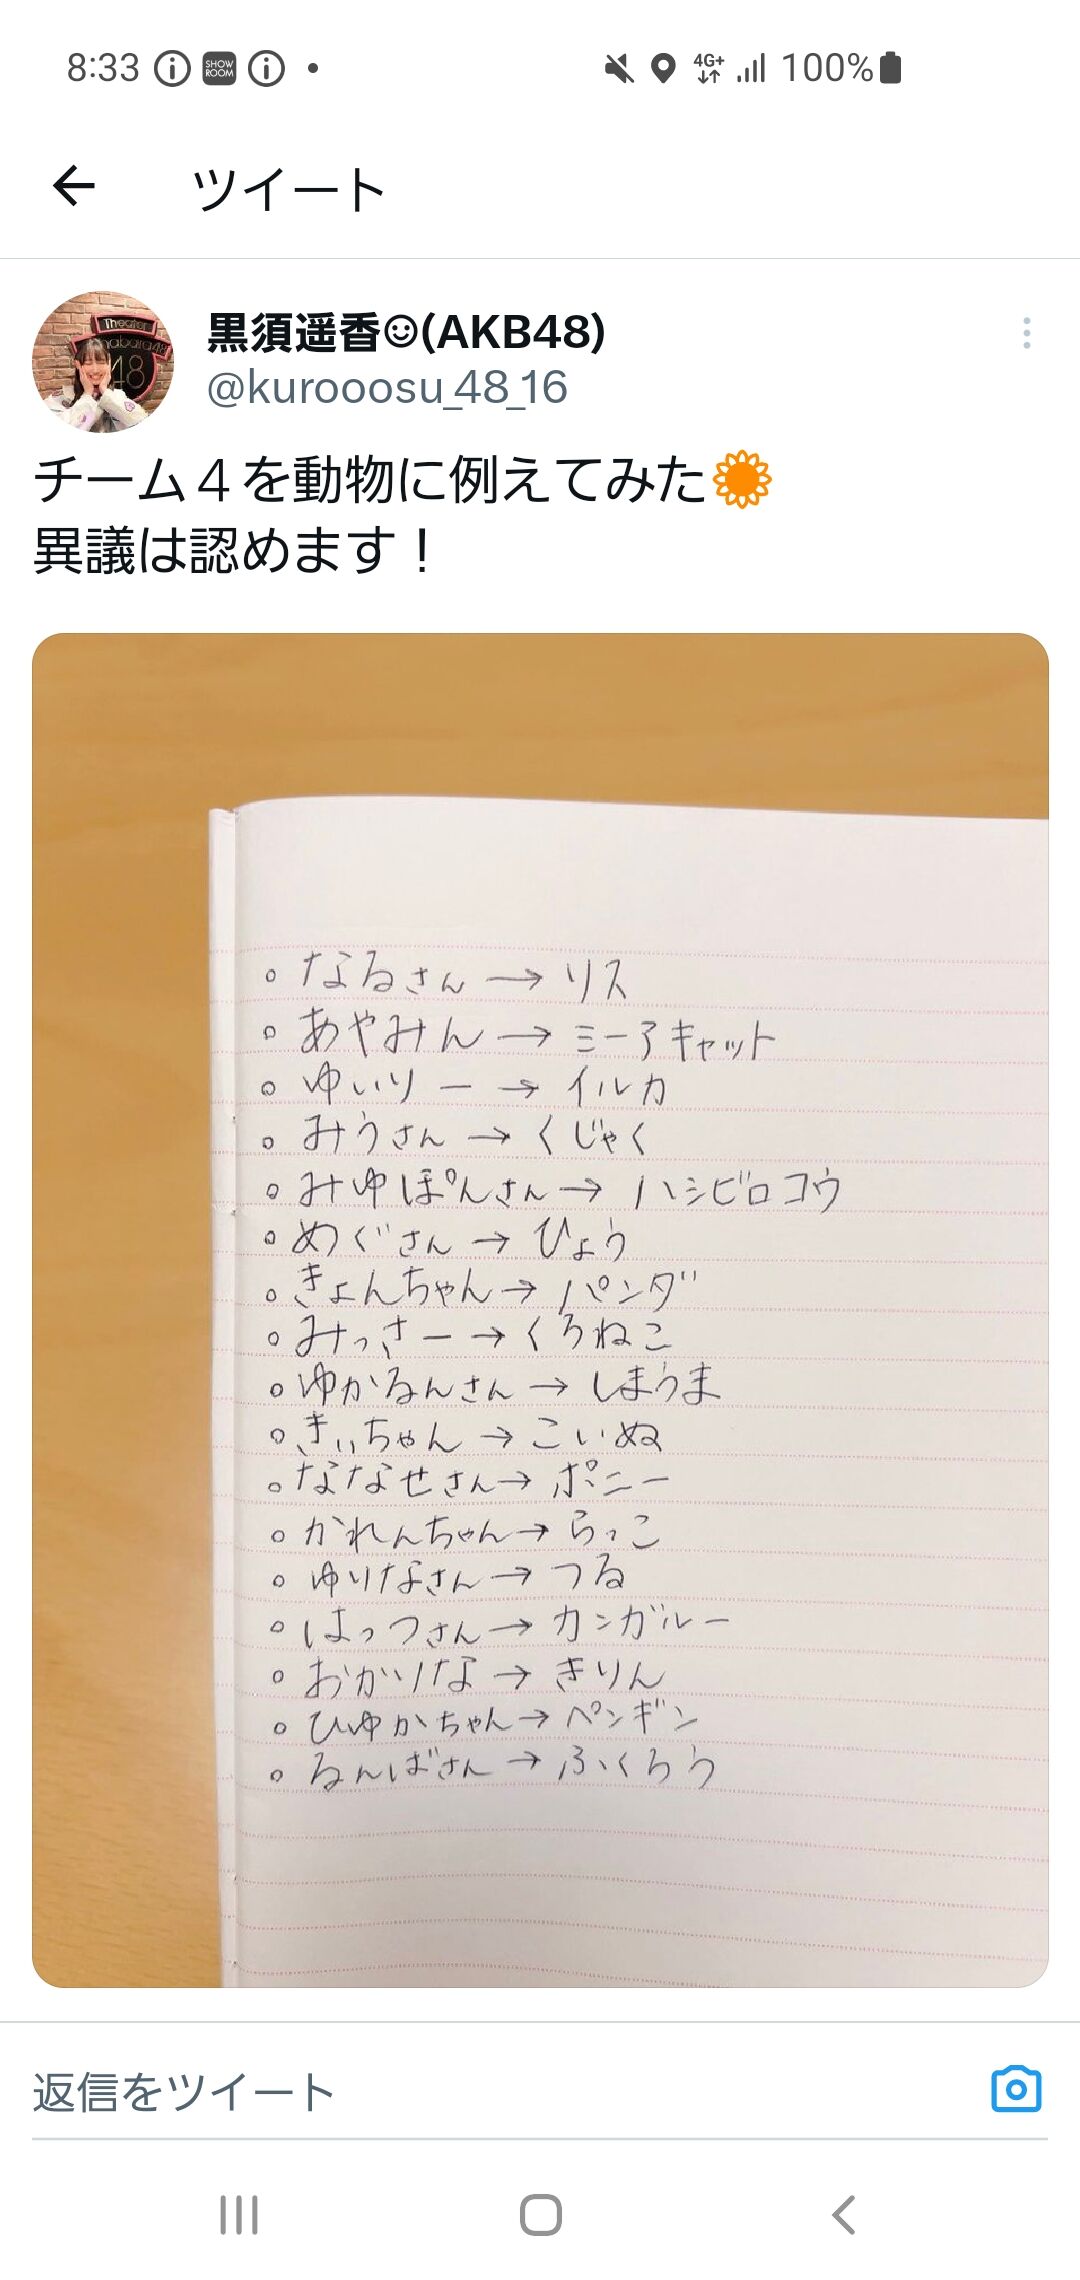 8:33 SHOW ROOM 4G+ 100%
ツイート
Theater
48
黒須遥香☺(AKB48)
@kurooosu_48_16
チーム４を動物に例えてみた🌻
異議は認めます！
。なるさん→リス
。あやみん→ミーアキャット
。ゆいりー→イルカ
。みうさん→くじゃく
。みゆぽんさん→ハシビロコウ
。めぐさん→ひょう
。きょんちゃん→パンダ
。みっさー→くろねこ
。ゆかるんさん→しまうま
。きぃちゃん→こいぬ
。ななせさん→ポニー
。かれんちゃん→らっこ
。ゆりなさん→つる
。はっつさん→カンガルー
。おかりな→きりん
。ひゆかちゃん→ペンギン
。るんばさん→ふくろう
返信をツイート